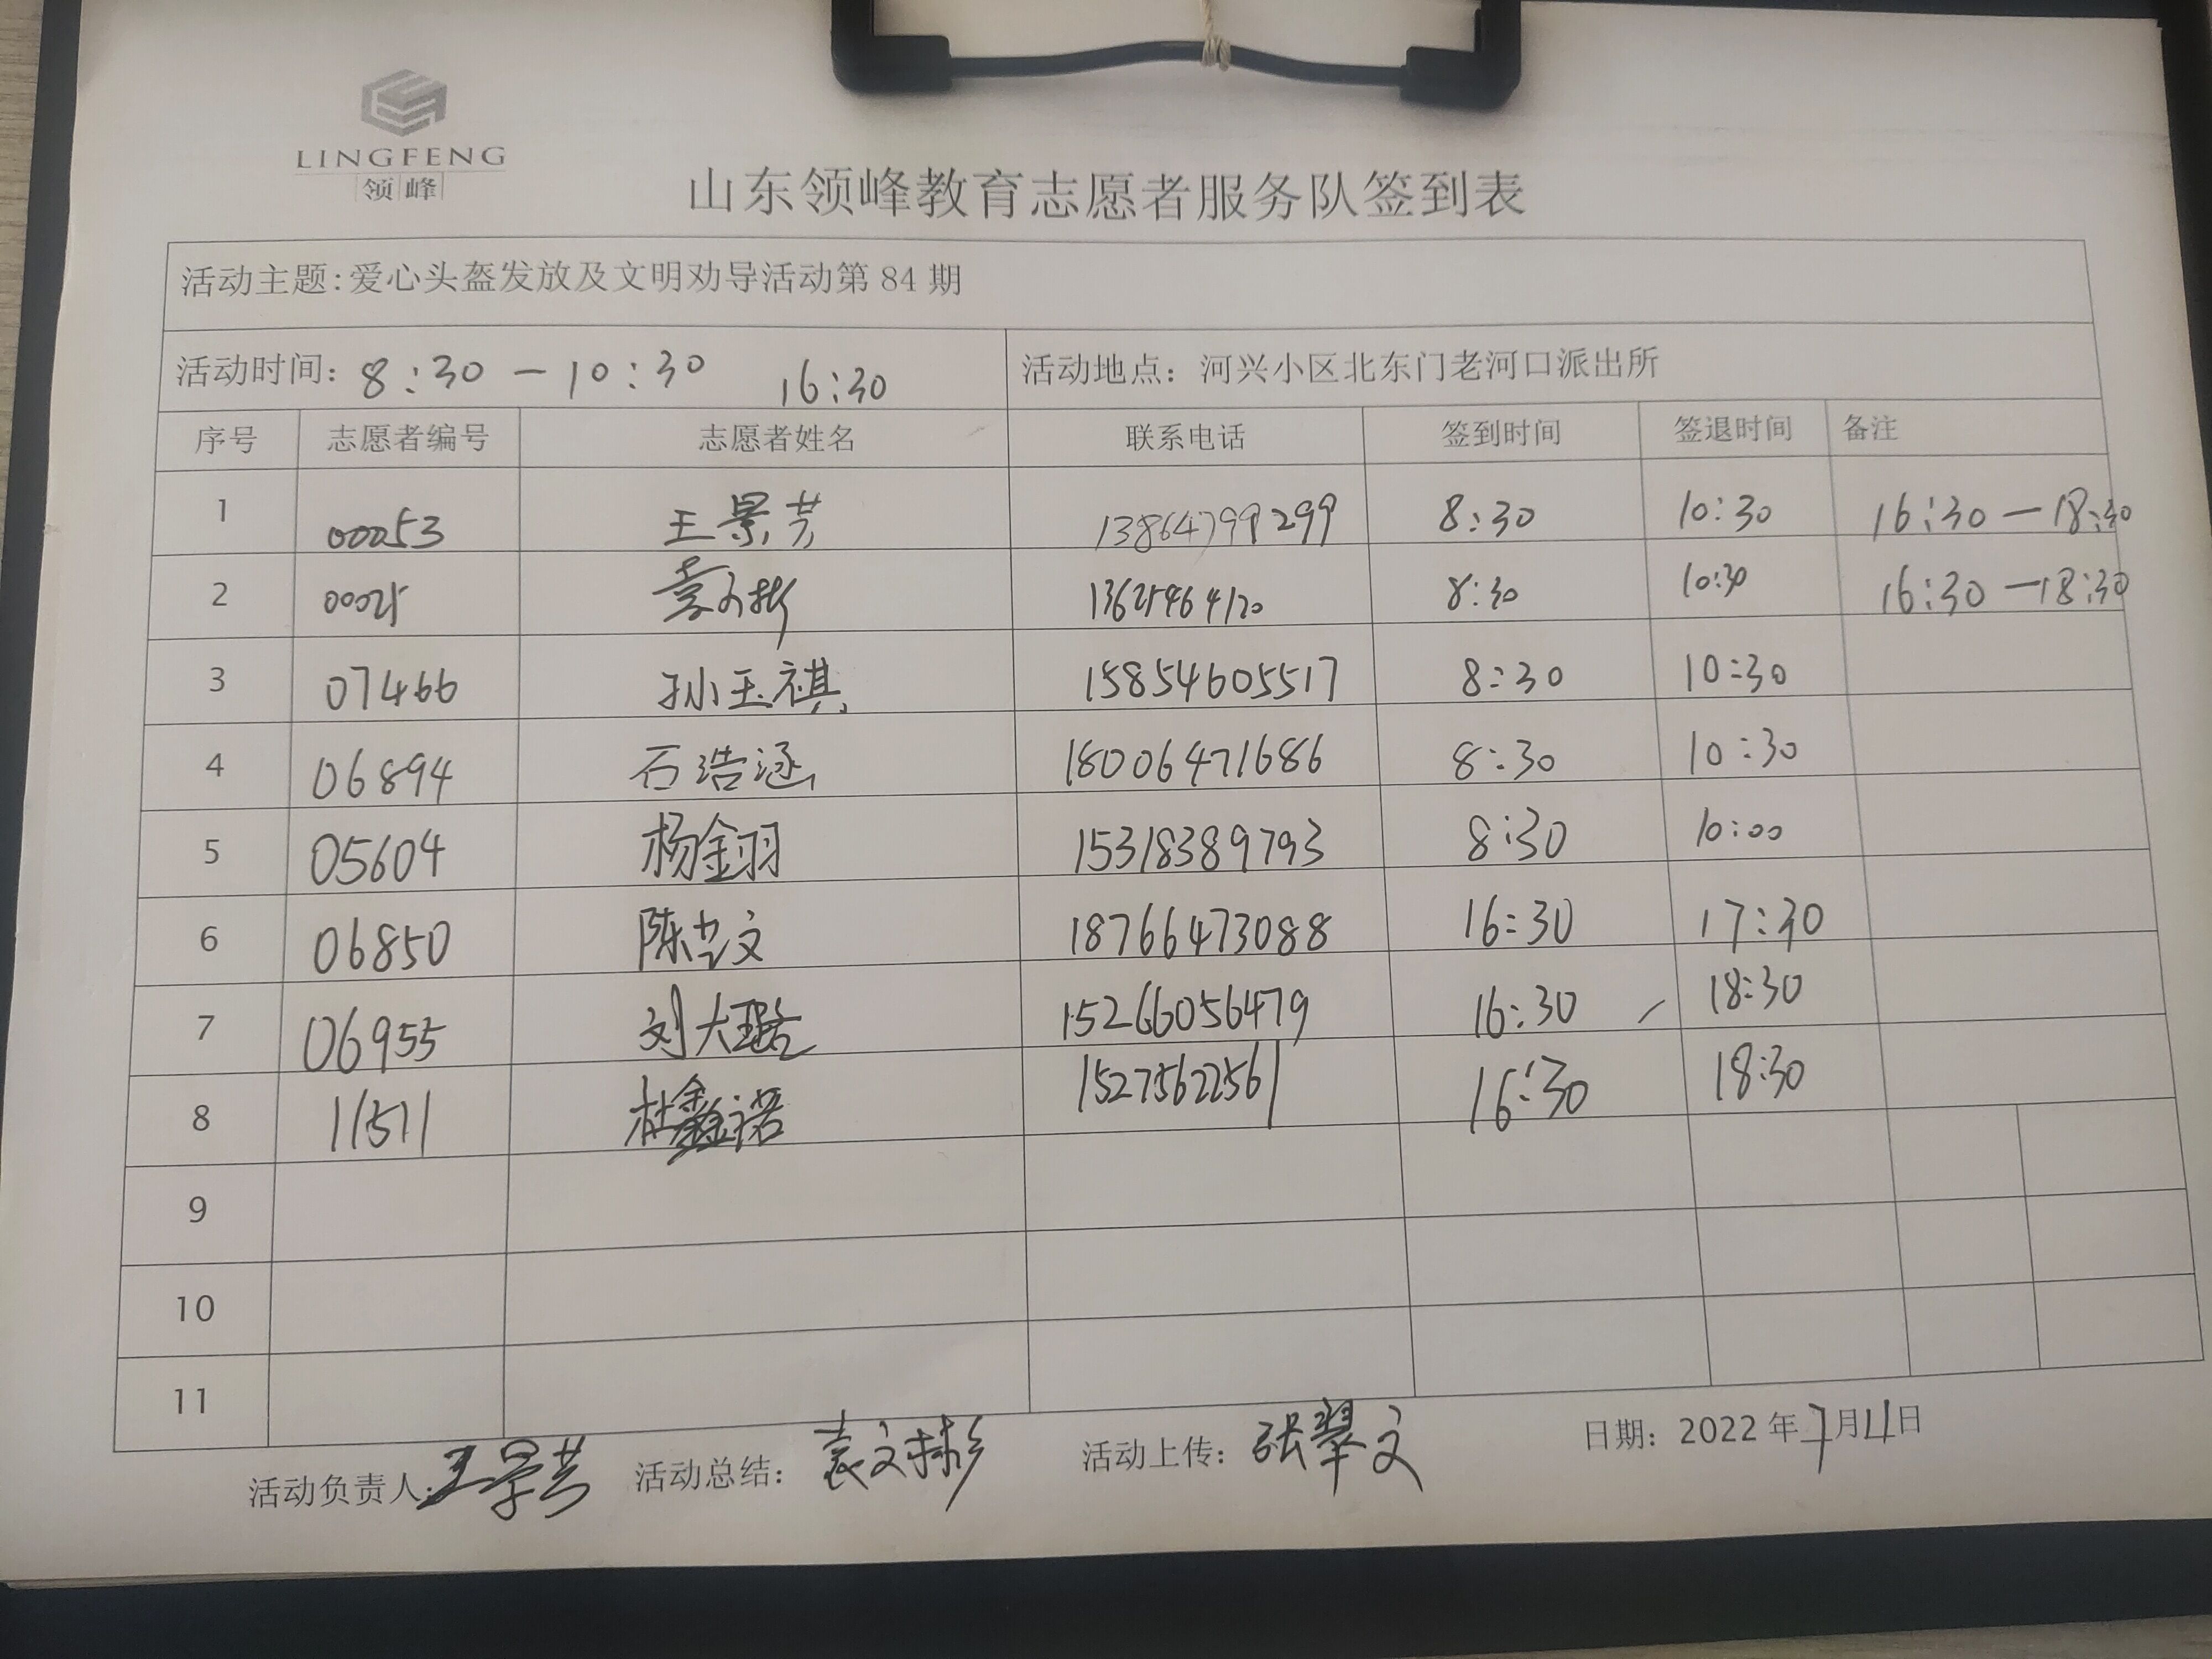 LINGFENG
领峰
山东领峰教育志愿者服务队签到表
活动主题:爱心头盔发放及文明劝导活动第 84 期
活动时间: 8:30 — 10:30 16:30 活动地点: 河兴小区北东门老河口派出所
序号 志愿者编号 志愿者姓名 联系电话 签到时间 签退时间 备注
1 00053 王景芳 13864799299 8:30 10:30 16:30 — 18:30
2 00025 袁文彬 13625464120 8:30 10:30 16:30 — 18:30
3 07466 孙玉祺 15854605517 8:30 10:30
4 06894 石浩涵 18006471686 8:30 10:30
5 05604 杨金羽 15318389793 8:30 10:00
6 06850 陈艺文 18766473088 16:30 17:30
7 06955 刘大 15266056479 16:30 18:30
8 11511 杜鑫诺 15275622561 16:30 18:30
9
10
11
活动负责人: 王景芳 活动总结: 袁文彬 活动上传: 张翠文 日期: 2022 年 7 月 日